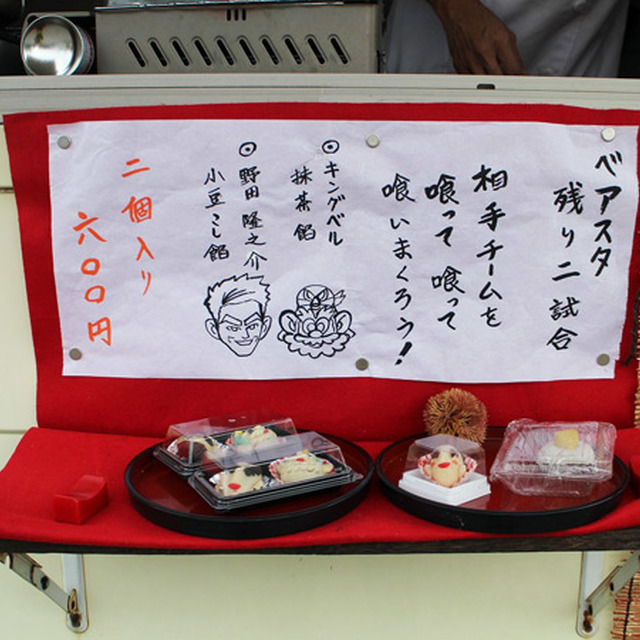 ベアスタ
残り二試合
相手チームを
喰って喰って
喰いまくろう!
◎キングベル
抹茶餡
◎野田隆之介
小豆こし餡
二個入り
六〇〇円